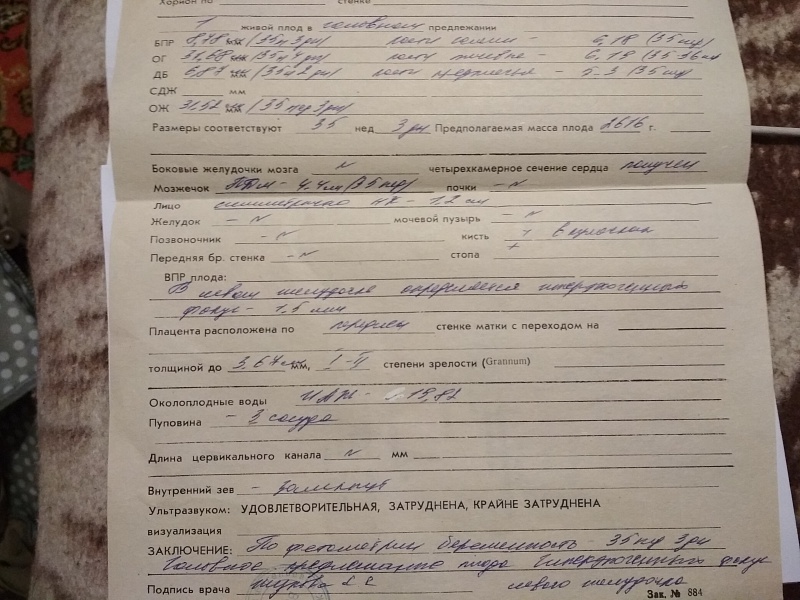 Хорион по стенке
1 живой плод в головном предлежании
БПР 8,78 мм (35н 3дн) кости голени - 6,18 (35нд)
ОГ мм кости - 6,19 (35-36нд
ДБ 6,87 мм (35н2дн) кости - 5-3 (35нд
СДЖ мм
ОЖ 31,52 мм (35нед 3дн)
Размеры соответствуют 35 нед 3дн Предполагаемая масса плода 2616 г.
Боковые желудочки мозга N четырехкамерное сечение сердца получен
Мозжечок - 4.4см (35нд) почки - N
Лицо симметрично - 1,2 см
Желудок - N мочевой пузырь - N
Позвоночник - N кисть + в кулачках
Передняя бр. стенка - N стопа +
ВПР плода:
В левом желудочке определяется гиперэхогенный
фокус - 1,5 мм
Плацента расположена по передней стенке матки с переходом на
толщиной до 3,67 мм, I-II степени зрелости (Grannum)
Околоплодные воды ИАЖ - 19,82
Пуповина - 3 сосуда
Длина цервикального канала N мм
Внутренний зев - замкнут
Ультразвуком: УДОВЛЕТВОРИТЕЛЬНАЯ, ЗАТРУДНЕНА, КРАЙНЕ ЗАТРУДНЕНА
визуализация
ЗАКЛЮЧЕНИЕ: По фетометрии беременность - 35нд 3дн
Головное предлежание плода Гиперэхогенный фокус
Подпись врача левого желудочка
Зак. № 884